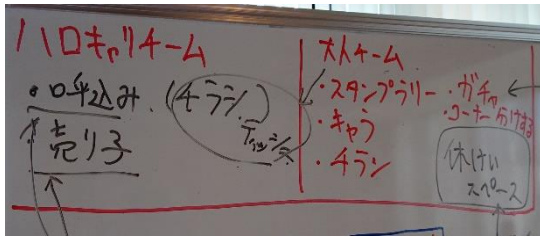 ハロキャリチーム
・呼込み (チラシ)
ティッシュ
売り子
大人チーム
・スタンプラリー
・キャラ
・チラシ
・ガチャ
・コーナー分けする
休けい
スペース